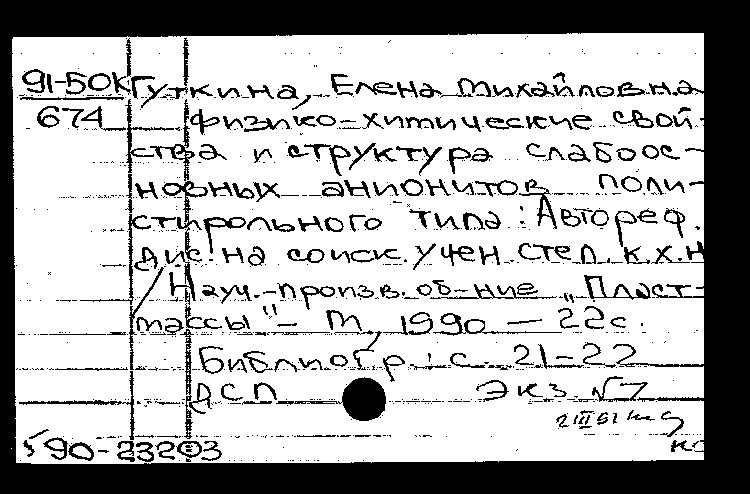 91-50К Гуткина, Елена Михайловна
674 физико-химические свой-
ства и структура слабоос-
новных анионитов поли-
стирольного типа : Автореф.
дис. на соиск. учен. степ. к.х.н
/ Науч.-произв. об-ние „Пласт-
массы". - М., 1990 — 22с.
Библиогр.: с. 21-22
ДСП Экз. №7
590-23203